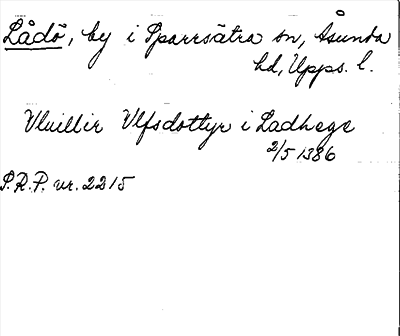 Lådö, by i Sparrsätra sn, Åsunda
hd, Upps. l.
Vluillir Vlfsdottyr i Ladhege
2/5 1386
S.R.P. nr. 2215